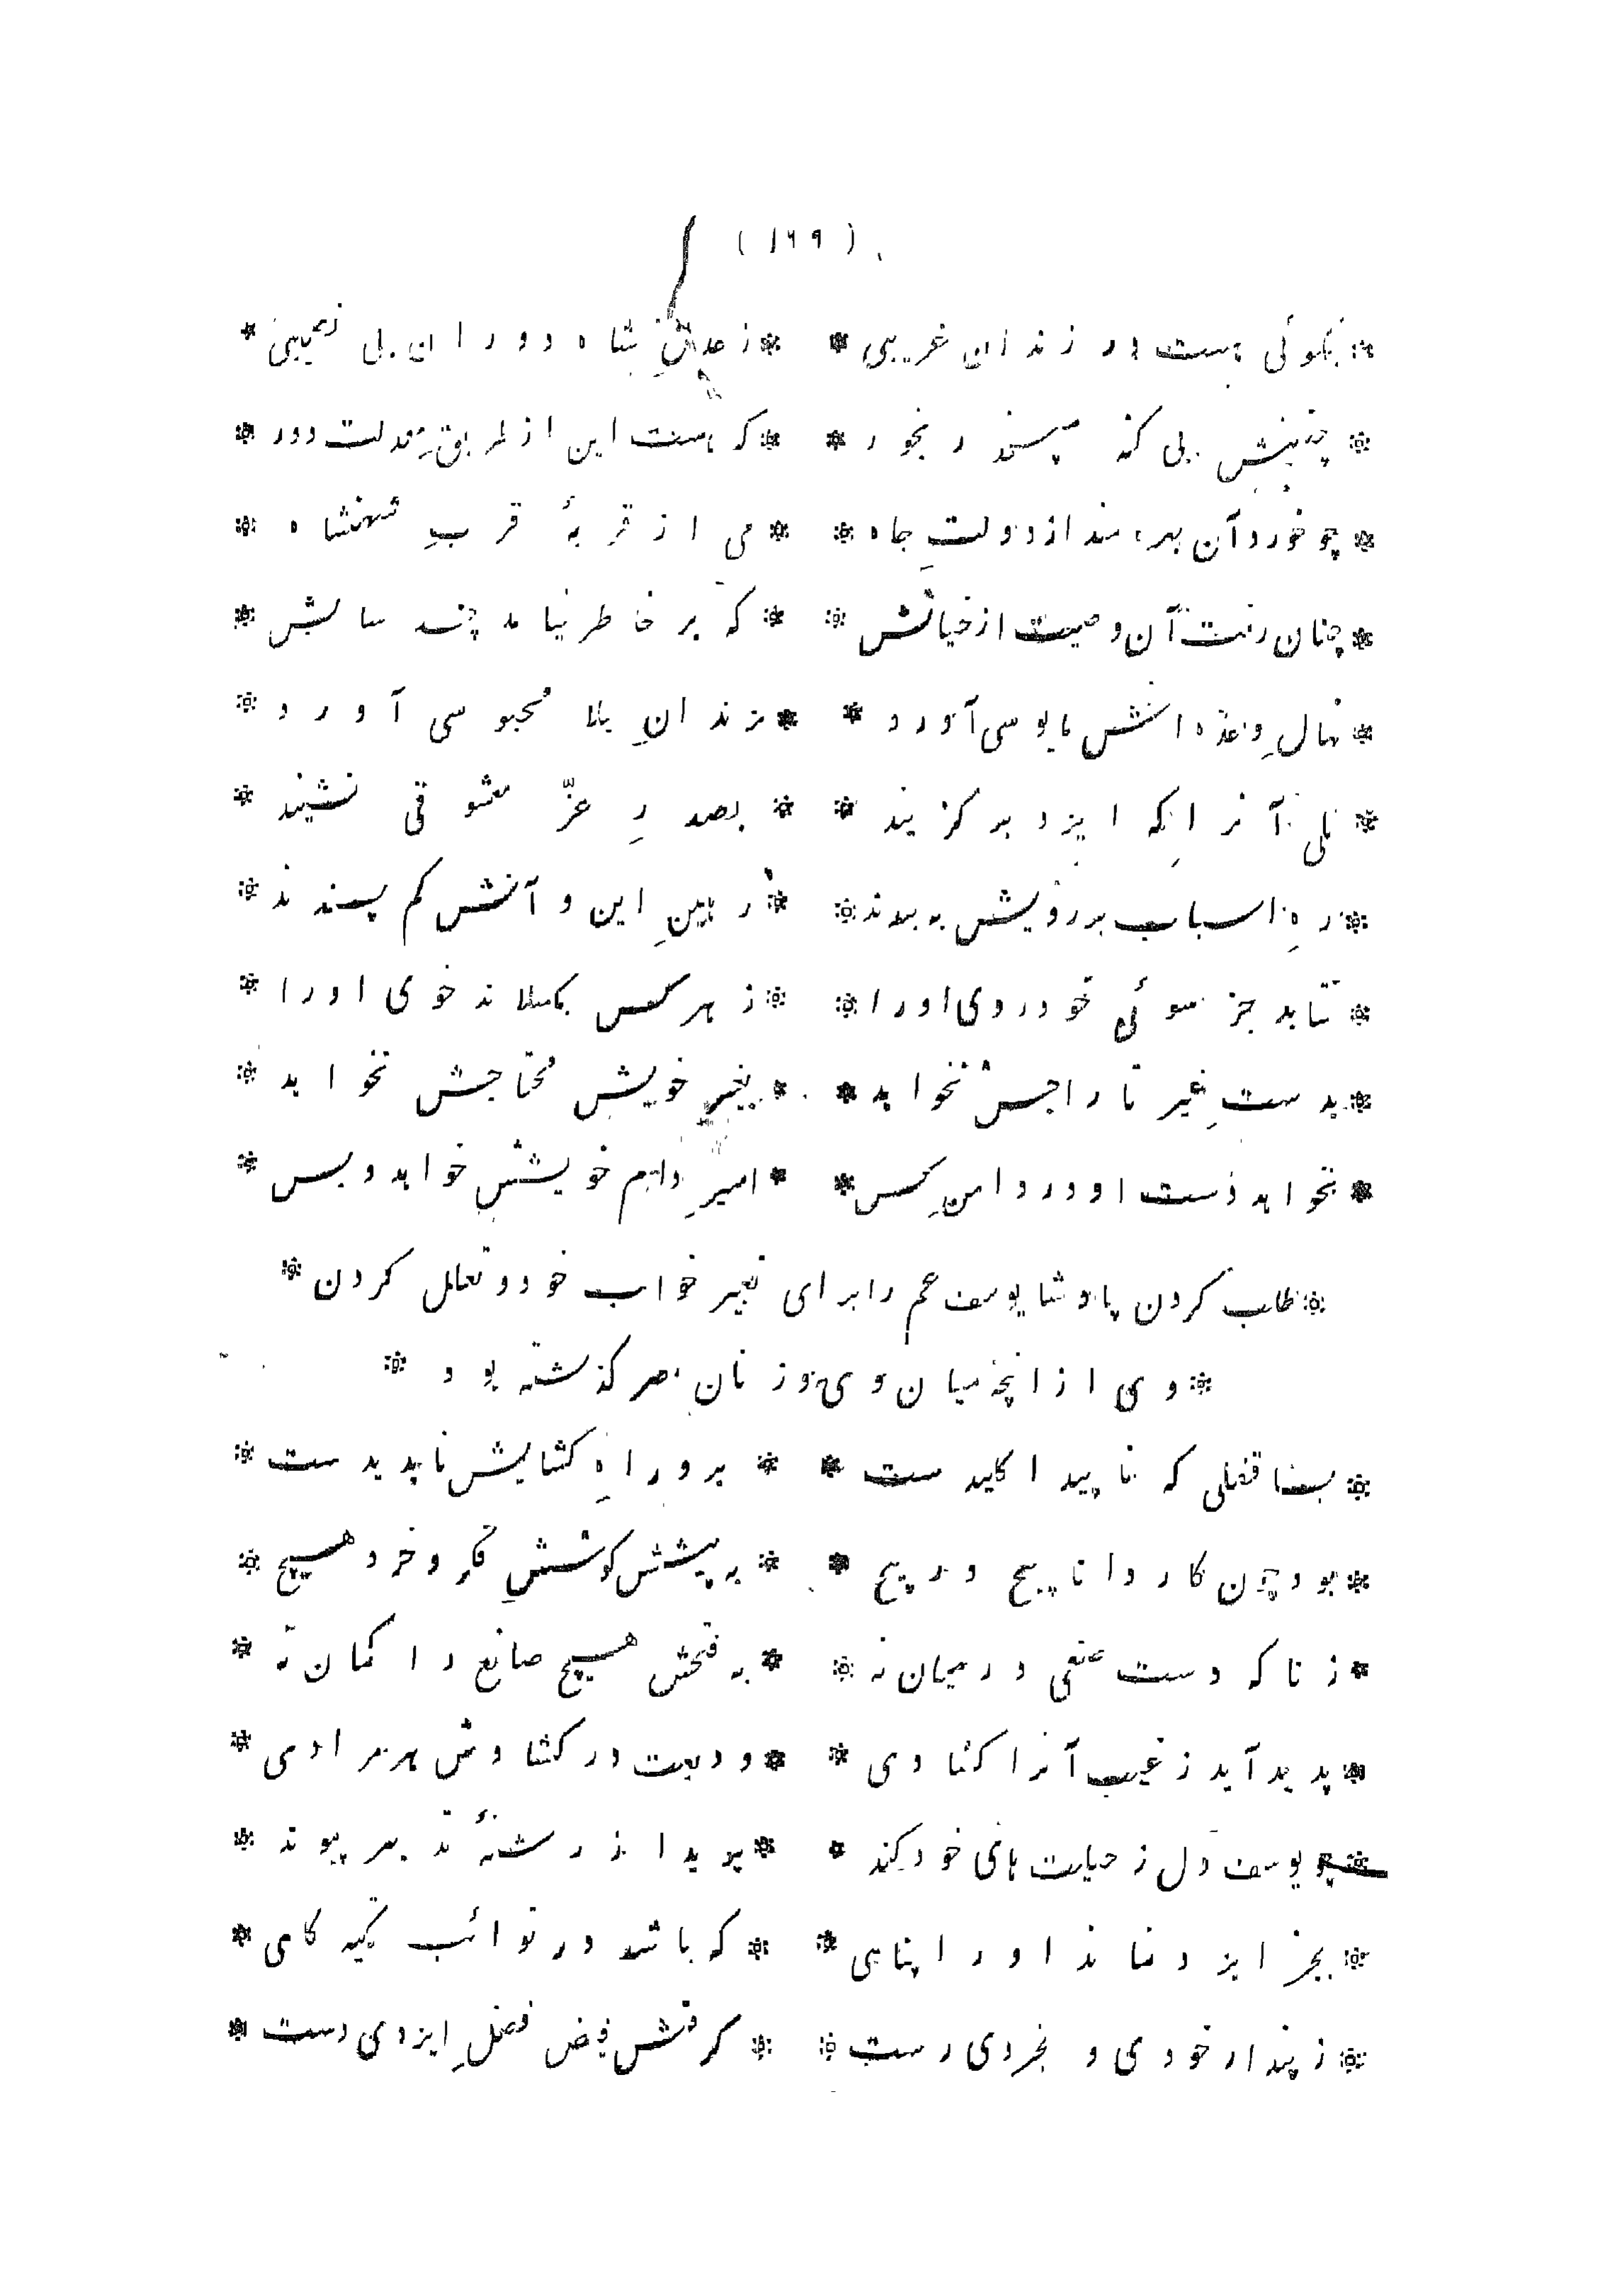 ( ۱۶۹ )
* بگوئی هست در زندان غریبی * * ز عدلِ شاه دوران بی نصیبی *
* چنینش بی گنه مپسند رنجور * * که هست این از طریقِ معدلت دور *
* چو خورد آن بهره‌مند از دولتِ جاه * * می از قربهٔ قربِ شهنشاه *
* چنان رفت آن وصیت از خیالش * * که بر خاطر نیامد چند سالش *
* نهالِ وعده اش مایوسی آورد * * بزندانِ بلا محبوسی آورد *
* بلی آنرا که ایزد برگزیند * * بصدرِ عزّ معشوقی نشیند *
* رهِ اسباب بر رویش به بندد * * رهینِ این و آنش کم پسندد *
* نتابد جز سوئی خود روی او را * * ز هر کس بگسلاند خوی او را *
* بدستِ غیر تاراجش نخواهد * * بغیرِ خویش محتاجش نخواهد *
* نخواهد دست او در دامنِ کس * * اسیرِ دامِ خویشش خواهد و بس *
* طلب کردن پادشا یوسف عم را برای تعبیر خواب خود و تعلل کردن *
* وی از انچه میان وی و زنان مصر گذشته بود *
* بسا قفلی که ناپیدا کلید ست * * برو راهِ کشایش ناپدید ست *
* بود چون کار دانا پیچ در پیچ * * به پیشش کوششِ فکر و خرد هیچ *
* ز ناگه دست صنعی در میان نه * * به فتحش هیچ صانع را گمان نه *
* پدید آید ز غیب آنرا کشادی * * ودیعت در کشادش هر مرادی *
* چو یوسف دل ز حیلت های خود کند * * برید از رشتهٔ تدبیر پیوند *
* بجز ایزد نماند او را پناهی * * که باشد در نوائب تکیه گاهی *
* ز پندار خودی و بخردی رست * * گرفتش فیض فضلِ ایزدی دست *